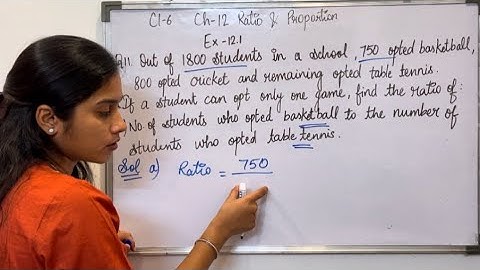 Cl-6 Ch-12 Ratio & Proportion
Ex-12.1
Q11. Out of 1800 students in a school, 750 opted basketball,
800 opted cricket and remaining opted table tennis.
If a student can opt only one game, find the ratio of:
No of students who opted basketball to the number of
students who opted table tennis.
Sol a) Ratio = 750